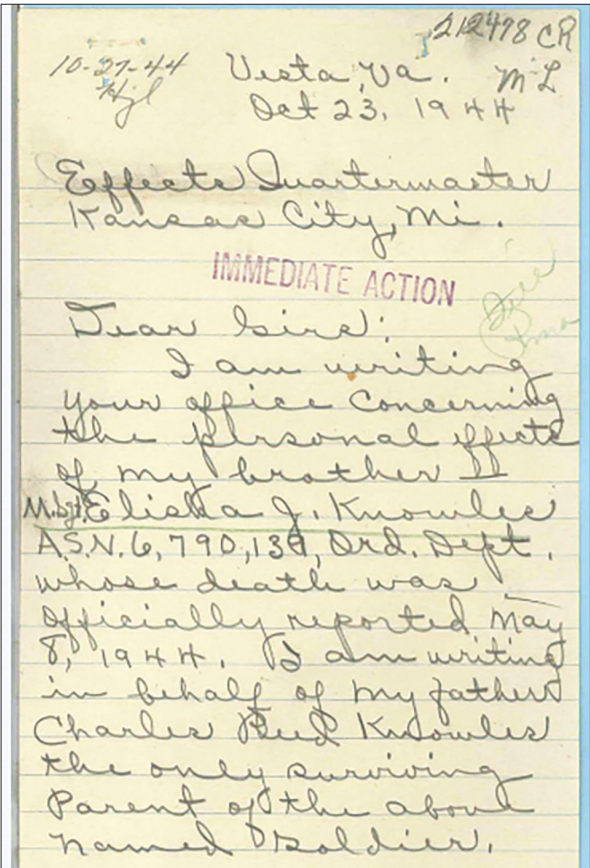 212478 CR
10-27-44 Vesta, Va. ML
Hjl Oct 23, 1944
Effects Quartermaster
Kansas City, Mi.
IMMEDIATE ACTION
Dear Sirs:
I am writing
your office concerning
the personal effects
of my brother
M.Sgt. Elisha J. Knowles
A.S.N. 6,790,139, Ord. Dept.
whose death was
officially reported May
8, 1944. I am writing
in behalf of my father
Charles Reed Knowles
the only surviving
Parent of the above
named soldier.